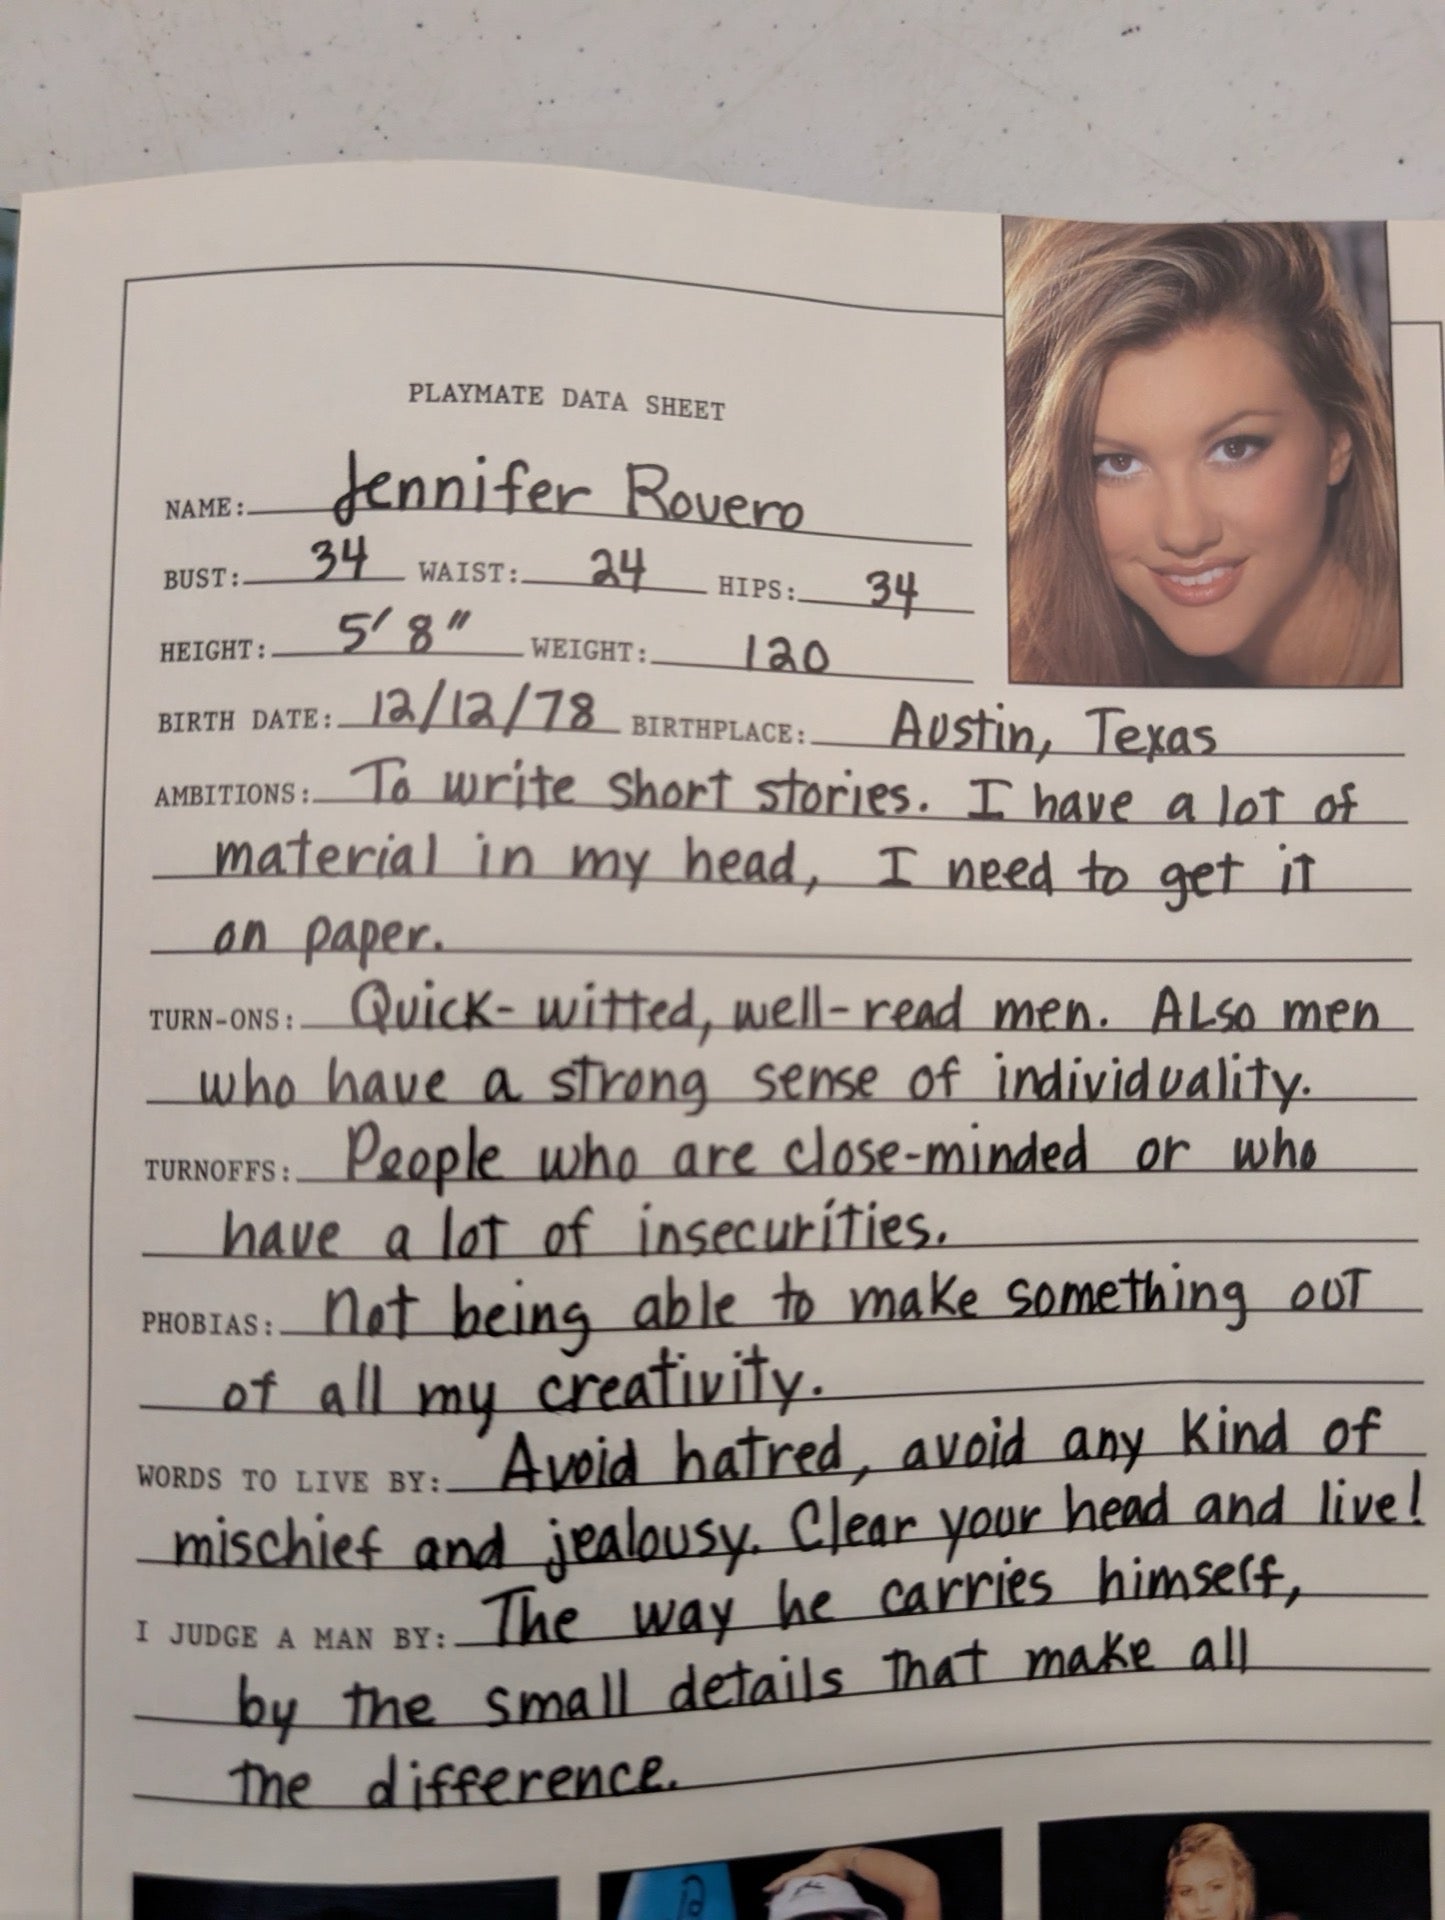 PLAYMATE DATA SHEET
NAME: Jennifer Rovero
BUST: 34 WAIST: 24 HIPS: 34
HEIGHT: 5' 8" WEIGHT: 120
BIRTH DATE: 12/12/78 BIRTHPLACE: Austin, Texas
AMBITIONS: To write short stories. I have a lot of
material in my head, I need to get it
on paper.
TURN-ONS: Quick-witted, well-read men. Also men
who have a strong sense of individuality.
TURNOFFS: People who are close-minded or who
have a lot of insecurities.
PHOBIAS: Not being able to make something out
of all my creativity.
WORDS TO LIVE BY: Avoid hatred, avoid any kind of
mischief and jealousy. Clear your head and live!
I JUDGE A MAN BY: The way he carries himself,
by the small details that make all
the difference.